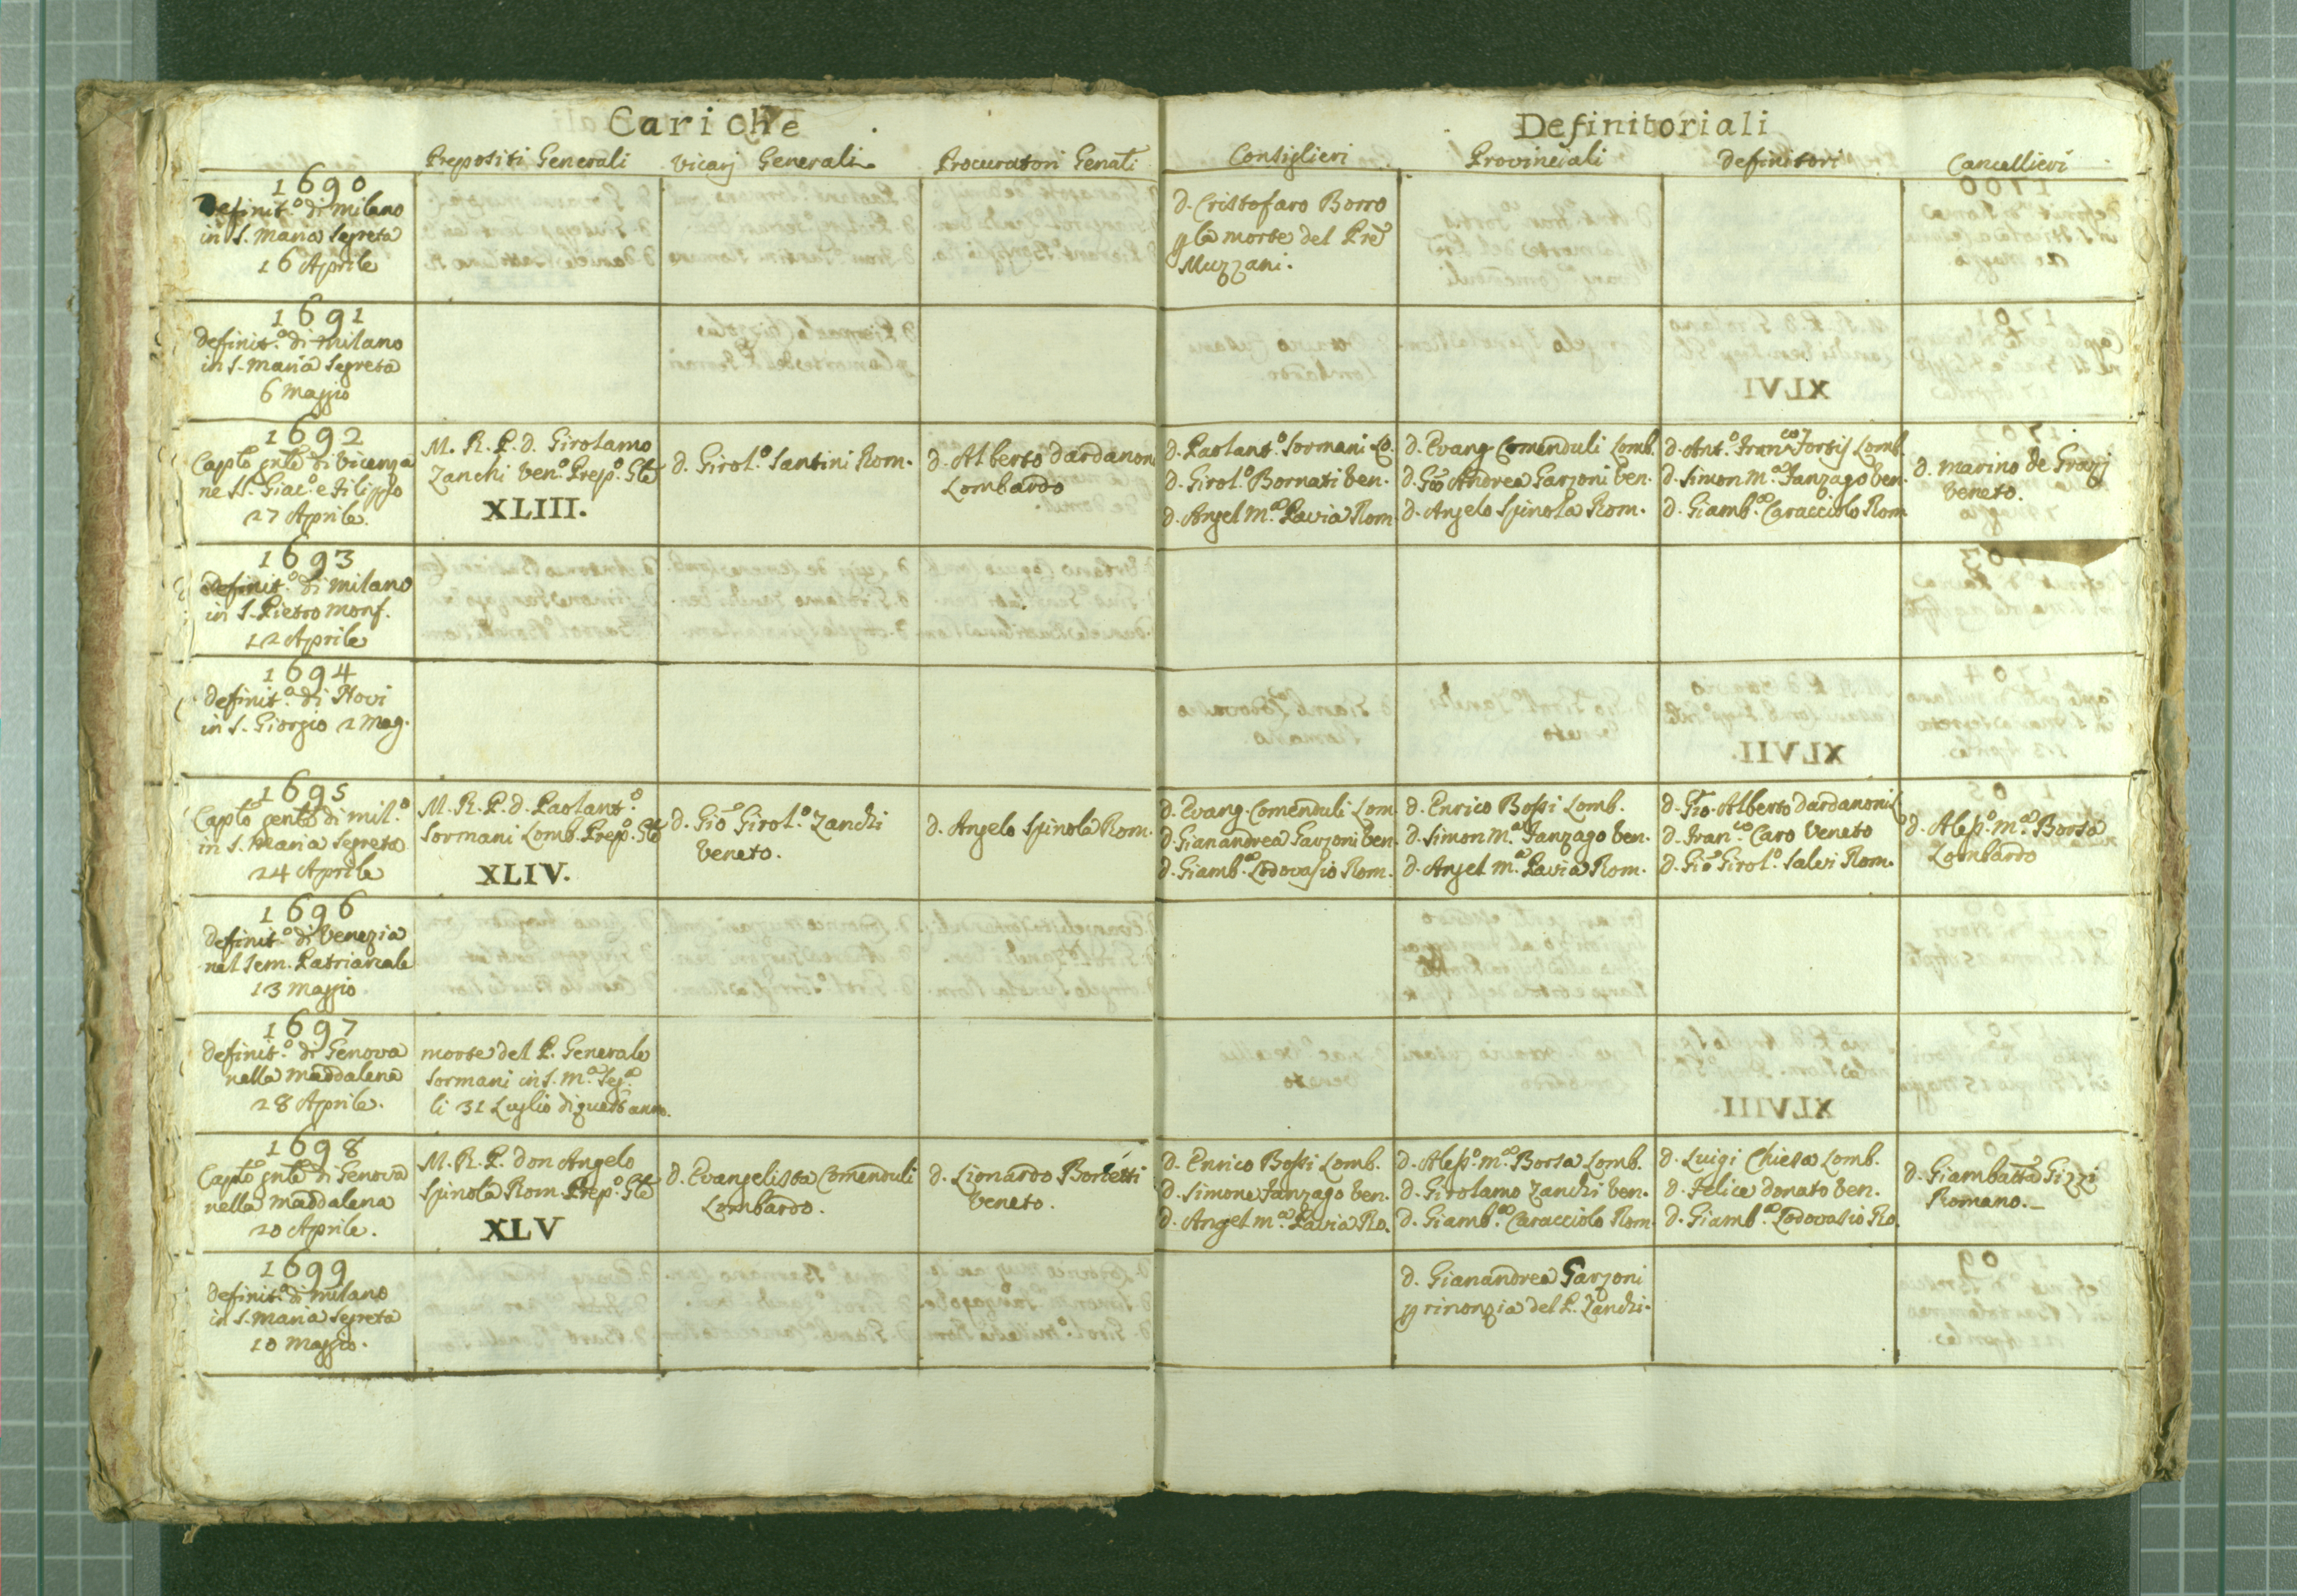 Cariche
Definitoriali
Prepositi Generali
Vicarj Generali
Procuratori Genāli
Consiglieri
Provinciali
Definitori
Cancellieri
1690
Definit.º di Milano
in S. Maria Segreta
16 Aprile
d. Cristofaro Borro
la morte del Prē
Muzzani.
1691
Definit.º di Milano
in S. Maria Segreta
6 Maggio
1692
Capto gnle di Vicenza
ne SS. Giac.º e Filippo
27 Aprile.
M. R. P. d. Girolamo
Zanchi Ven.º Prep.º Gle
XLIII.
d. Girol.º Santini Rom.
d. Alberto Dardanon
Lombardo
d. Paolant.º Sormani Lo.
d. Girol.º Bornati Ven.
d. Angel M.ª Pavia Rom.
d. Evang Comenduli Lomb.
d. Giō Andrea Garzoni Ven.
d. Angelo Spinola Rom.
d. Ant.º Fran.co Fortis Lomb.
d. Simon M.ª Fanzago Ven.
d. Giamb.ª Caracciolo Rom
d. Marino de Grazj
Veneto.
1693
Definit.º di Milano
in S. Pietro Monf.
12 Aprile
1694
Definit.º di Novi
in S. Giorgio 2 Mag.
1695
Capto genle di Mil.º
in S. Maria Segreta
24 Aprile
M. R. P. d. Paolant.º
Sormani Lomb. Prep.º Gle
XLIV.
d. Giō Girol.º Zanchi
Veneto.
d. Angelo Spinola Rom.
d. Evang. Comenduli Lom
d. Gianandrea Garzoni Ven.
d. Giamb.ª Lodovasio Rom.
d. Enrico Bossi Lomb.
d. Simon M.ª Fanzago Ven.
d. Angel M.ª Pavia Rom.
d. Giō. Alberto Dardanoni L
d. Fran.co Caro Veneto
d. Giō Girol.º Salvi Rom.
d. Aless.º M.ª Borsa
Lombardo
1696
Definit.º di Venezia
nel Sem. Patriarcale
13 Maggio
1697
Definit.º di Genova
nella Maddalena
28 Aprile.
morte del P. Generale
Sormani in S. M.ª Seg.ª
li 31 Luglio di quest'anno.
1698
Capto gnle di Genova
nella Maddalena
20 Aprile.
M. R. P. don Angelo
Spinola Rom. Prep.º Gle
XLV
d. Evangelista Comenduli
Lombardo.
d. Lionardo Borletti
Veneto.
d. Enrico Bossi Lomb.
d. Simone Fanzago Ven.
d. Angel M.ª Pavia Ro.
d. Aless.º M.ª Borsa Lomb.
d. Girolamo Zanchi Ven.
d. Giamb.ª Caracciolo Rom.
d. Luigi Chiesa Lomb.
d. Felice Donato Ven.
d. Giamb.ª Lodovasio Ro.
d. Giambatta Gizzi
Romano.
1699
Definit.º di Milano
in S. Maria Segreta
10 Maggio.
d. Gianandrea Garzoni
rinonzia del P. Zanchi.